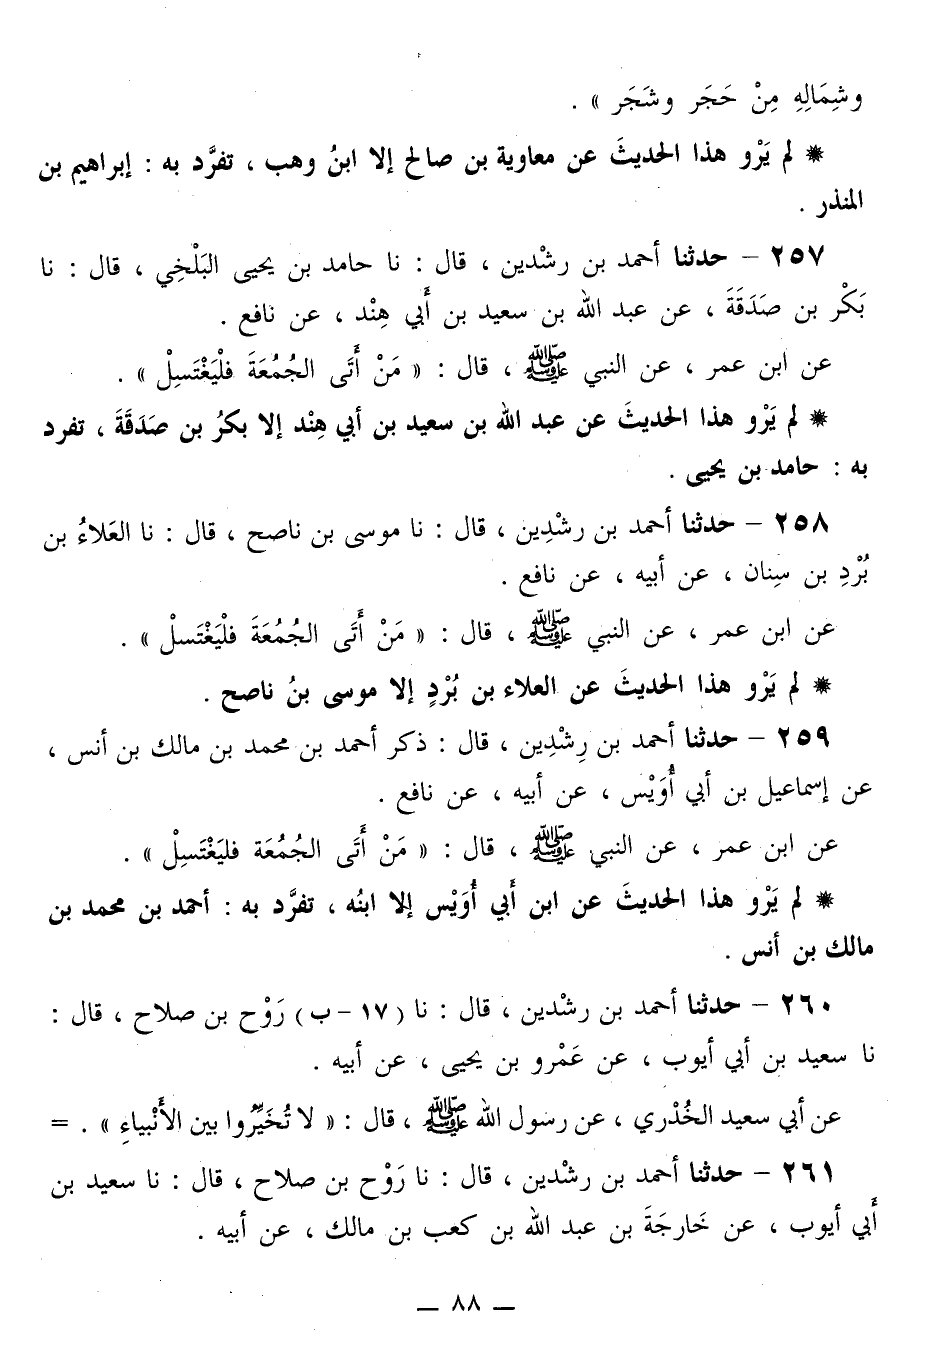 وشِمَالِهِ مِنْ حَجَر وشَجَر » .
* لم يَرْوِ هذا الحديثَ عن معاوية بن صالح إلا ابنُ وهب ، تفرَّد به : إبراهيم بن
المنذر .
٢٥٧ – حدثنا أحمد بن رشْدين ، قال : نا حامد بن يحيى البَلْخِي ، قال : نا
بَكْر بن صَدَقَةَ ، عن عبد الله بن سعيد بن أَبي هِنْد ، عن نافع .
عن ابن عمر ، عن النبي ﷺ ، قال : « مَنْ أَتَى الجُمُعَةَ فلْيَغْتَسِلْ » .
* لم يَرْو هذا الحديثَ عن عبد الله بن سعيد بن أبي هِنْد إلا بكرُ بن صَدَقَةَ ، تفرد
به : حامد بن يحيى .
٢٥٨ – حدثنا أحمد بن رشْدِين ، قال : نا موسى بن ناصح ، قال : نا العَلاءُ بن
بُرْدِ بن سِنان ، عن أبيه ، عن نافع .
عن ابن عمر ، عن النبي ﷺ ، قال : « مَنْ أَتَى الجُمُعَةَ فلْيَغْتَسلْ » .
* لم يَرْو هذا الحديثَ عن العلاء بن بُرْدٍ إلا موسى بنُ ناصح .
٢٥٩ – حدثنا أحمد بن رِشْدِين ، قال : ذكر أحمد بن محمد بن مالك بن أنس ،
عن إسماعيل بن أبي أُوَيْس ، عن أبيه ، عن نافع .
عن ابن عمر ، عن النبي ﷺ ، قال : « مَنْ أَتَى الجُمُعَة فليَغْتَسِلْ » .
* لم يَرْو هذا الحديثَ عن ابن أَبي أُوَيْس إلا ابنُه ، تفرَّد به : أحمد بن محمد بن
مالك بن أنس .
٢٦٠ – حدثنا أحمد بن رشْدين ، قال : نا (١٧ – ب) رَوْح بن صلاح ، قال :
نا سعيد بن أبي أيوب ، عن عَمْرو بن يحيى ، عن أبيه .
عن أبي سعيد الخُدْري ، عن رسول الله ﷺ ، قال : « لا تُخَيِّرُوا بين الأَنْبياءِ » . =
٢٦١ – حدثنا أحمد بن رشْدين ، قال : نا رَوْح بن صلاح ، قال : نا سعيد بن
أَبي أيوب ، عن خَارجَةَ بن عبد الله بن كعب بن مالك ، عن أبيه .
— ٨٨ —